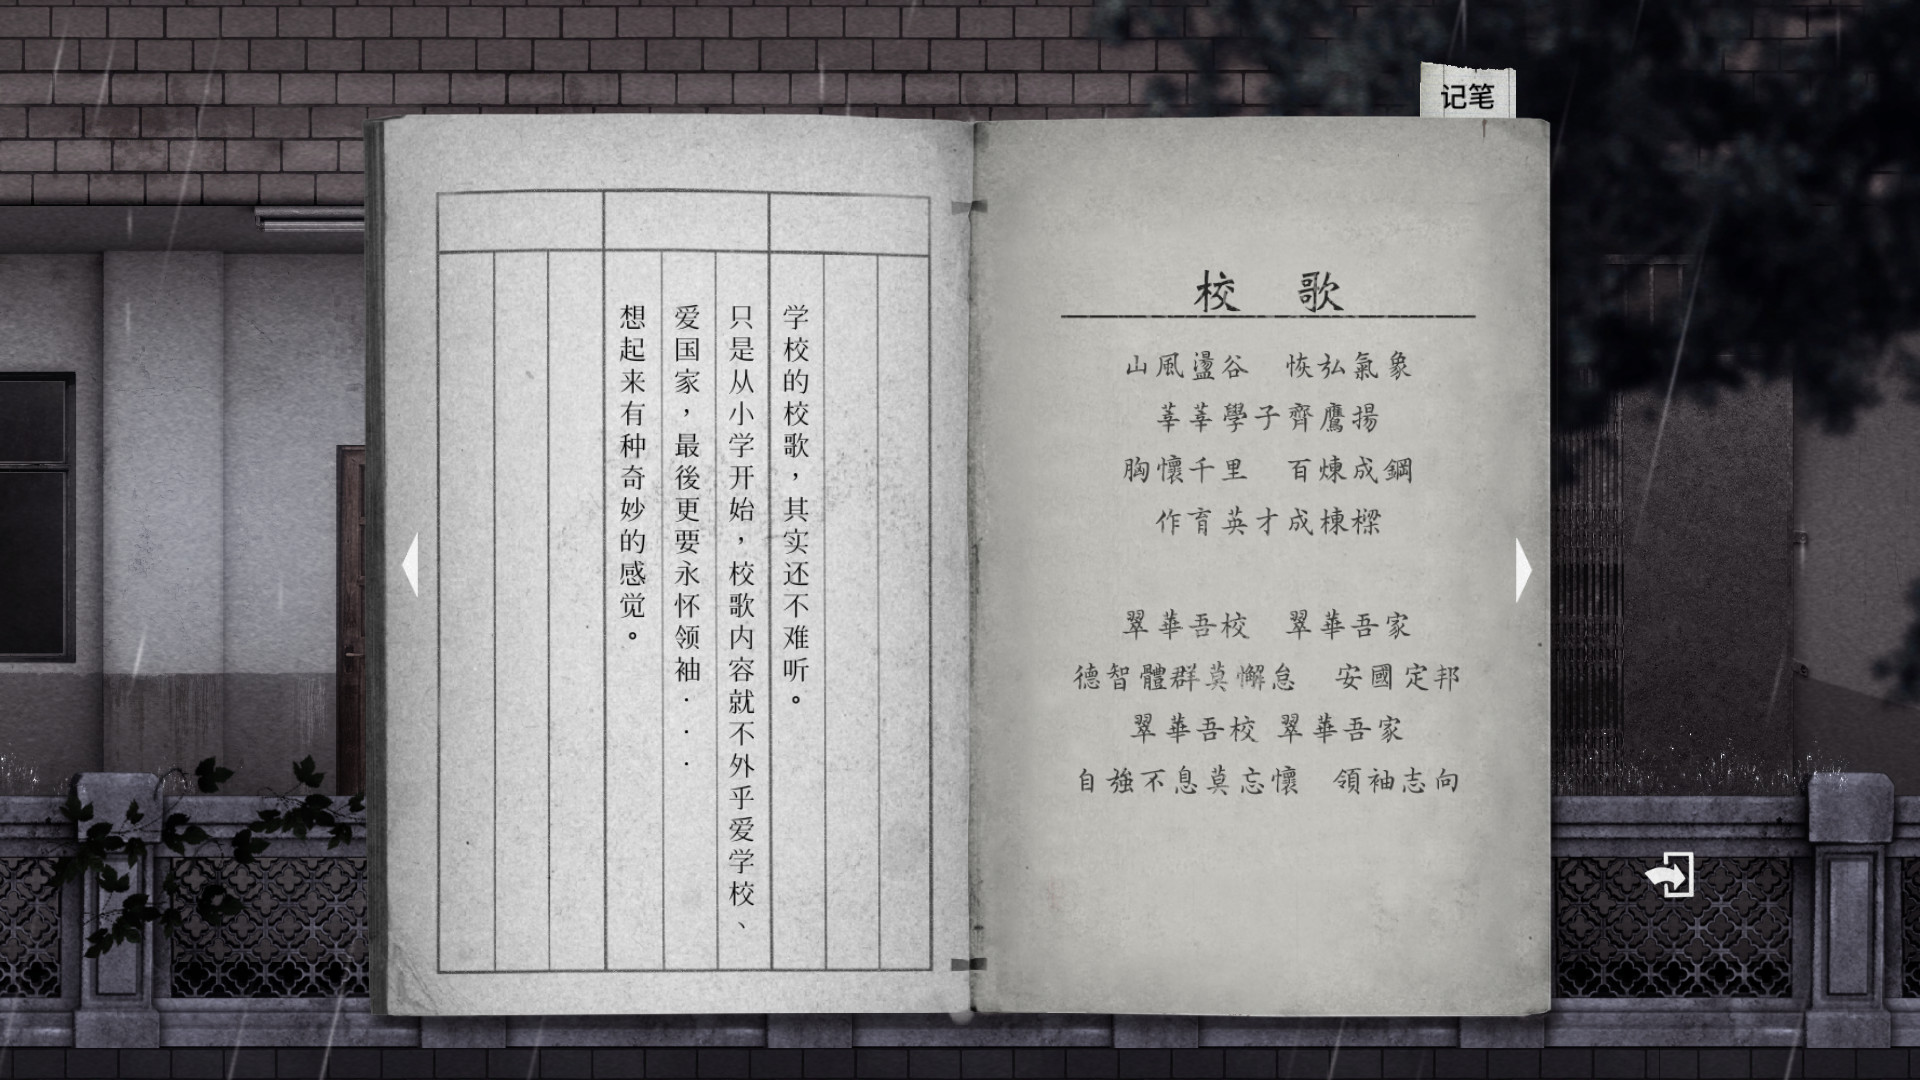 记笔
学校的校歌，其实还不难听。
只是从小学开始，校歌内容就不外乎爱学校、
爱国家，最後更要永怀领袖．．．
想起来有种奇妙的感觉。
校　歌
山風盪谷　恢弘氣象
莘莘學子齊鷹揚
胸懷千里　百煉成鋼
作育英才成棟樑
翠華吾校　翠華吾家
德智體群莫懈怠　安國定邦
翠華吾校 翠華吾家
自強不息莫忘懷　領袖志向